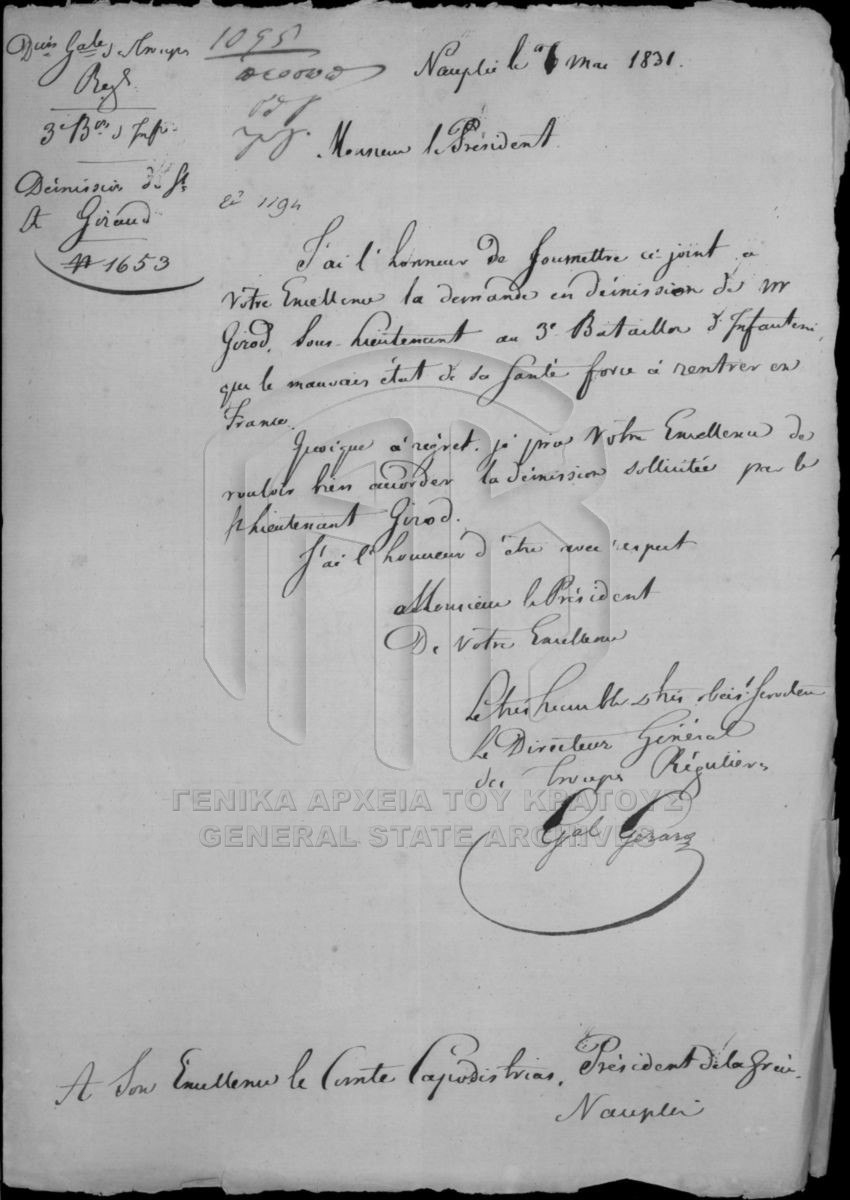 Don Gale d Troupes
Regl.
3e Bon d'Infie
Démission de St
A Giraud
N 1653
1095
Nauplie le 6 Mai 1831.
Monsieur le Président
1194
J'ai l'honneur de soumettre ci joint, a
Votre Excellence la demande en démission de Mr
Girod, Sous-Lieutenant au 3e Bataillon d'Infanterie,
que le mauvais état de sa santé force à rentrer en
France.
Quoique à regret, je prie Votre Excellence de
vouloir bien accorder la démission sollicitée par le
S/Lieutenant Girod.
J'ai l'honneur d'être avec respect
Monsieur le Président
De Votre Excellence
Le très humble & très obéist Serviteur
Le Directeur Général
des Troupes Régulières
Gal Gerard
ΓΕΝΙΚΑ ΑΡΧΕΙΑ ΤΟΥ ΚΡΑΤΟΥΣ
GENERAL STATE ARCHIVES
A Son Excellence le Comte Capodistrias, Président de la Grèce
Nauplie